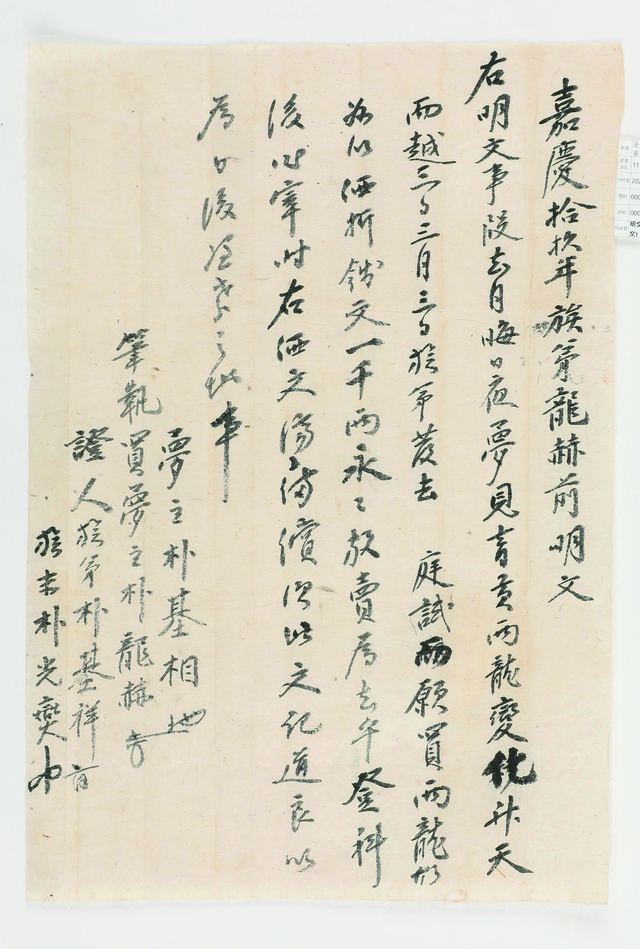 嘉慶拾玖年族弟龍赫前明文
右明文事段去月晦日夜夢見靑黃兩龍變化升天
而越三日三月三日族弟發去 庭試而願買兩龍故
価折錢文一千両永〻放賣爲去乎登科
後 時右価文 償 此文記 以
爲日後憑考之地事
夢主朴基相
筆執買夢主朴龍赫
證人族弟朴基祥
族末朴光爕